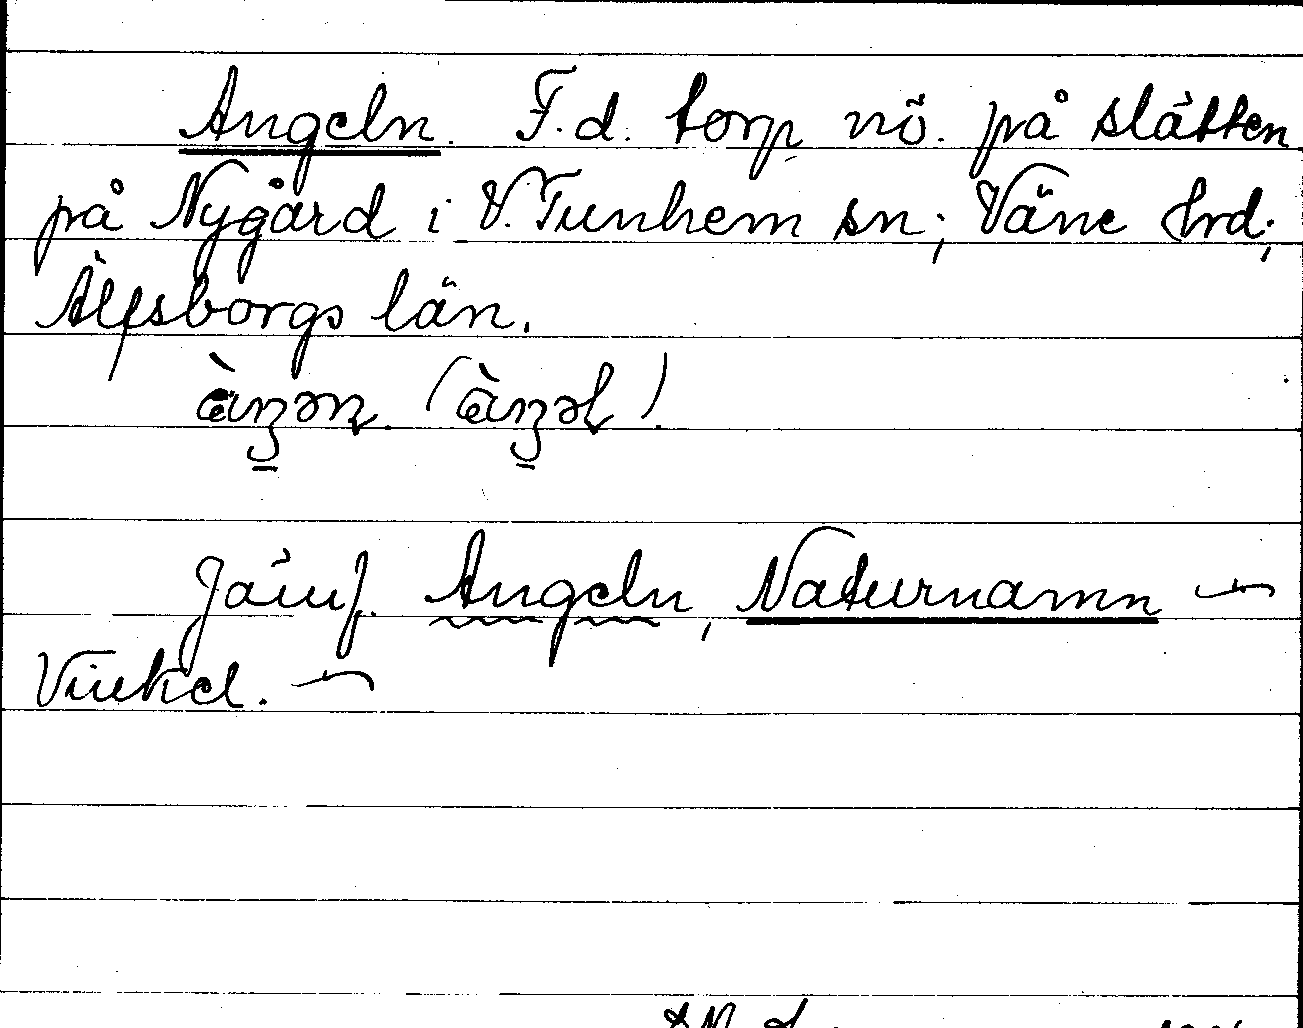 Angeln. F.d. torp nö. på slätten
på Nygård i V. Tunhem sn; Väne hrd;
Älfsborgs län.
Jämf. Angeln, Naturnamn ~
Vinkel. ~